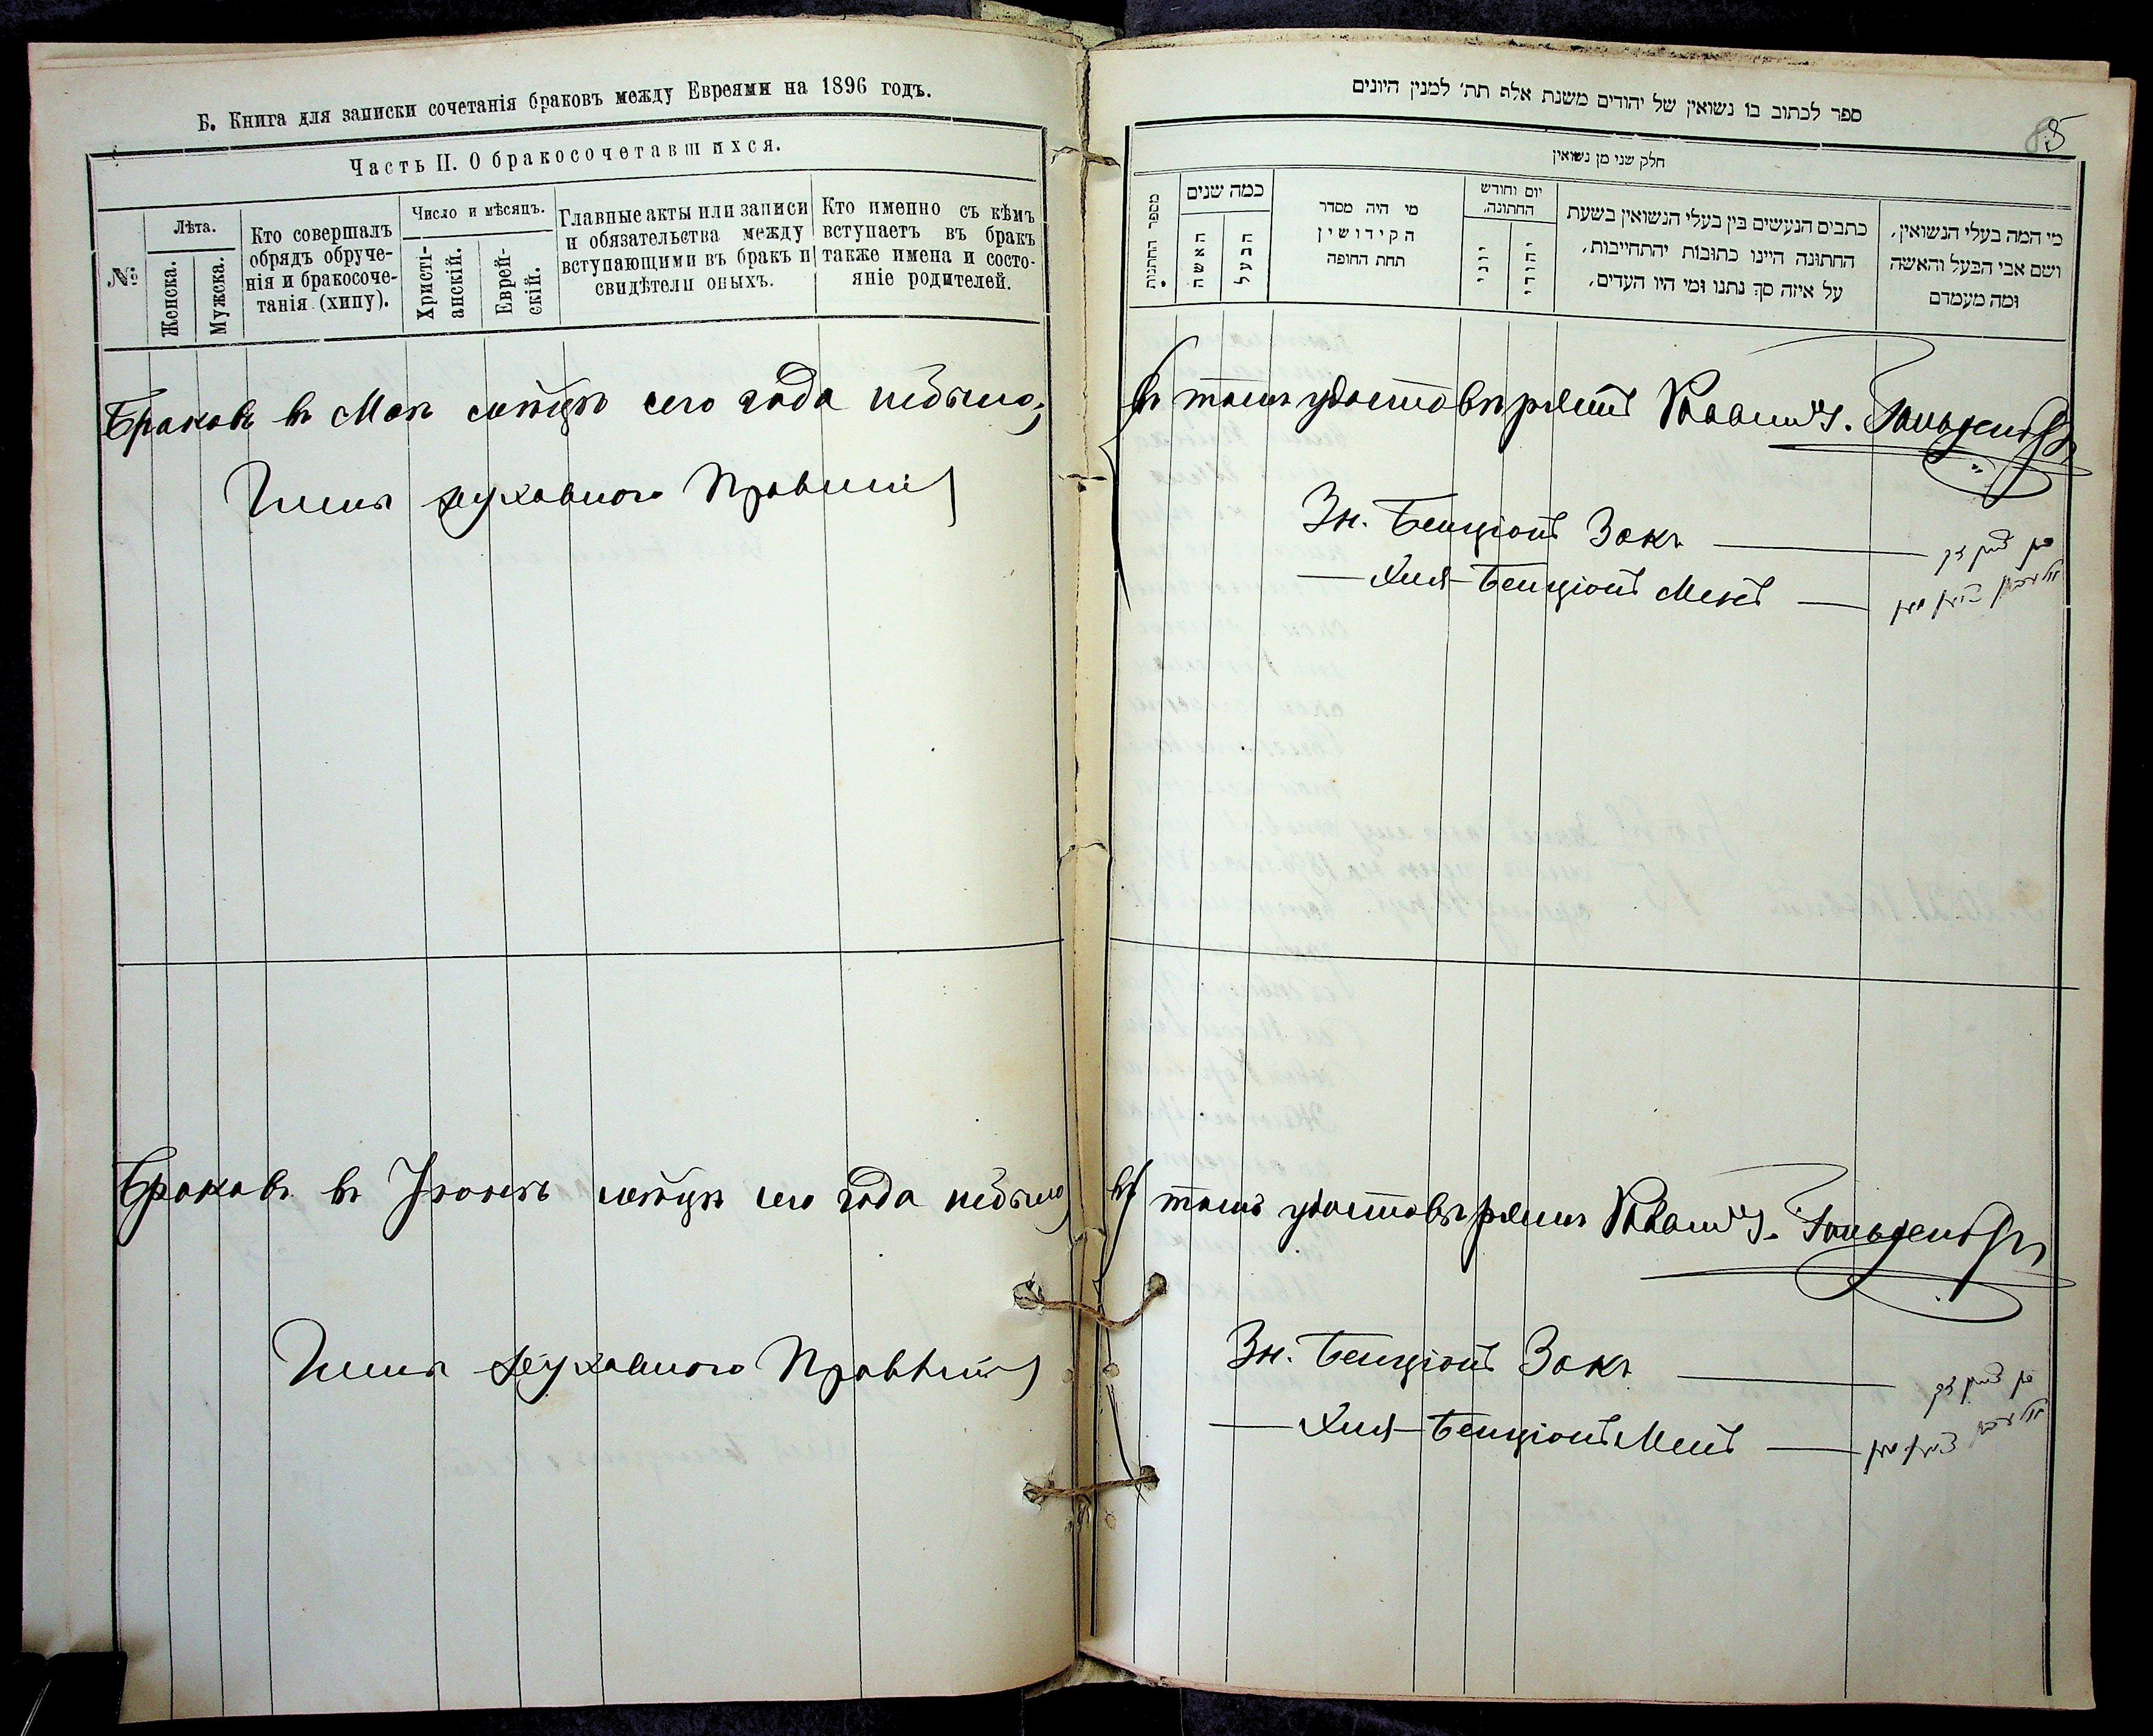 Б. Книга для записки сочетанія браковъ между Евреями на 1896 годъ.
Часть II. О бракосочетавшихся.
№
Лѣта.
Женска.
Мужска.
Кто совершалъ
обрядъ обруче-
нія и бракосоче-
танія (хипу).
Число и мѣсяцъ.
Христі-
анскій.
Еврей-
скій.
Главные акты или записи
и обязательства между
вступающими въ бракъ и
свидѣтели оныхъ.
Кто именно съ кѣмъ
вступаетъ въ бракъ
также имена и состо-
яніе родителей.
Браковъ въ Маѣ мѣсяцѣ сего года небыло,
Члены духовного Правленія
Браковъ въ Іюнѣ мѣсяцѣ сего года небыло
Члены духовного Правленія
ספר לכתוב בו נשואין של יהודים משנת אלף תת׳ למנין היונים
85
חלק שני מן נשואין
מספר החתונות
כמה שנים
האשה
הבעל
מי היה מסדר
הקידושין
תחת החופה
יום וחודש
החתונה.
יוני
יהודי
כתבים הנעשים בין בעלי הנשואין בשעת
החתונה היינו כתובות יהתחייבות,
על איזה סך נתנו ומי היו העדים,
מי המה בעלי הנשואין,
ושם אבי הבעל והאשה
ומה מעמדם
въ томъ удостовѣряетъ Раввинъ
Зн. Бенціонъ Закъ
Бенціонъ
въ томъ удостовѣряетъ Раввинъ
Зн. Бенціонъ Закъ
Бенціонъ